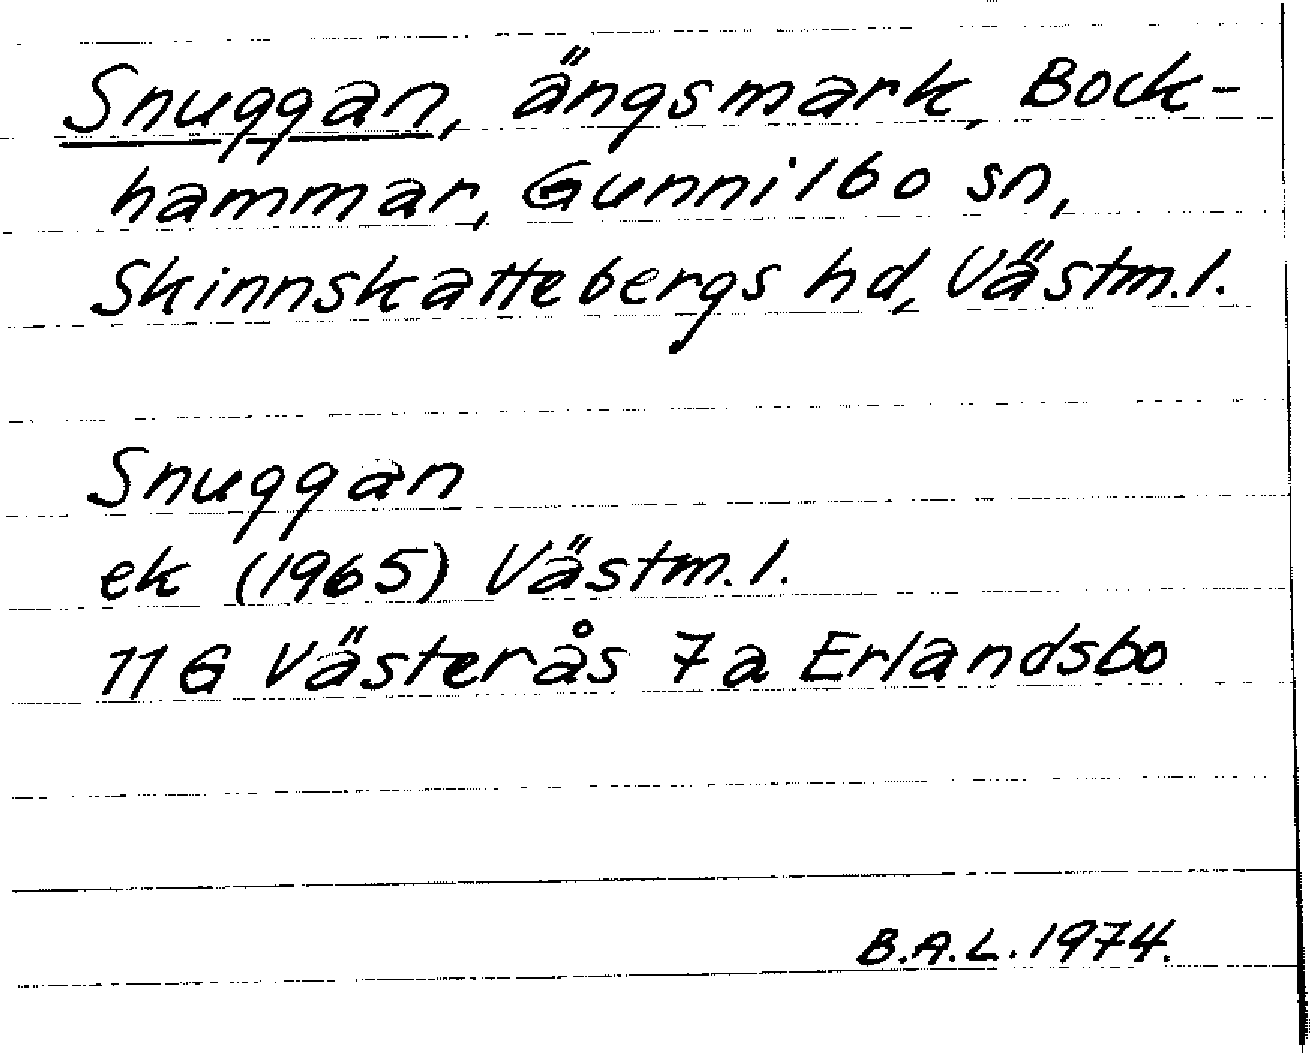 Snuggan, ängsmark, Bock-
hammar, Gunnilbo sn,
Skinnskattebergs hd, Västm.l.
Snuggan
ek (1965) Västm.l.
11G Västerås 7a Erlandsbo
B.A.L. 1974.